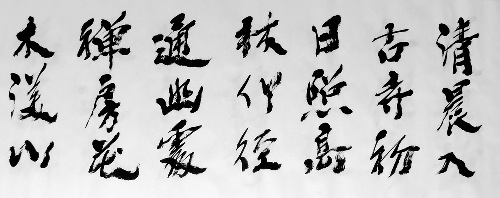 清晨入
古寺初
日照高
林竹徑
通幽處
禪房花
木深山